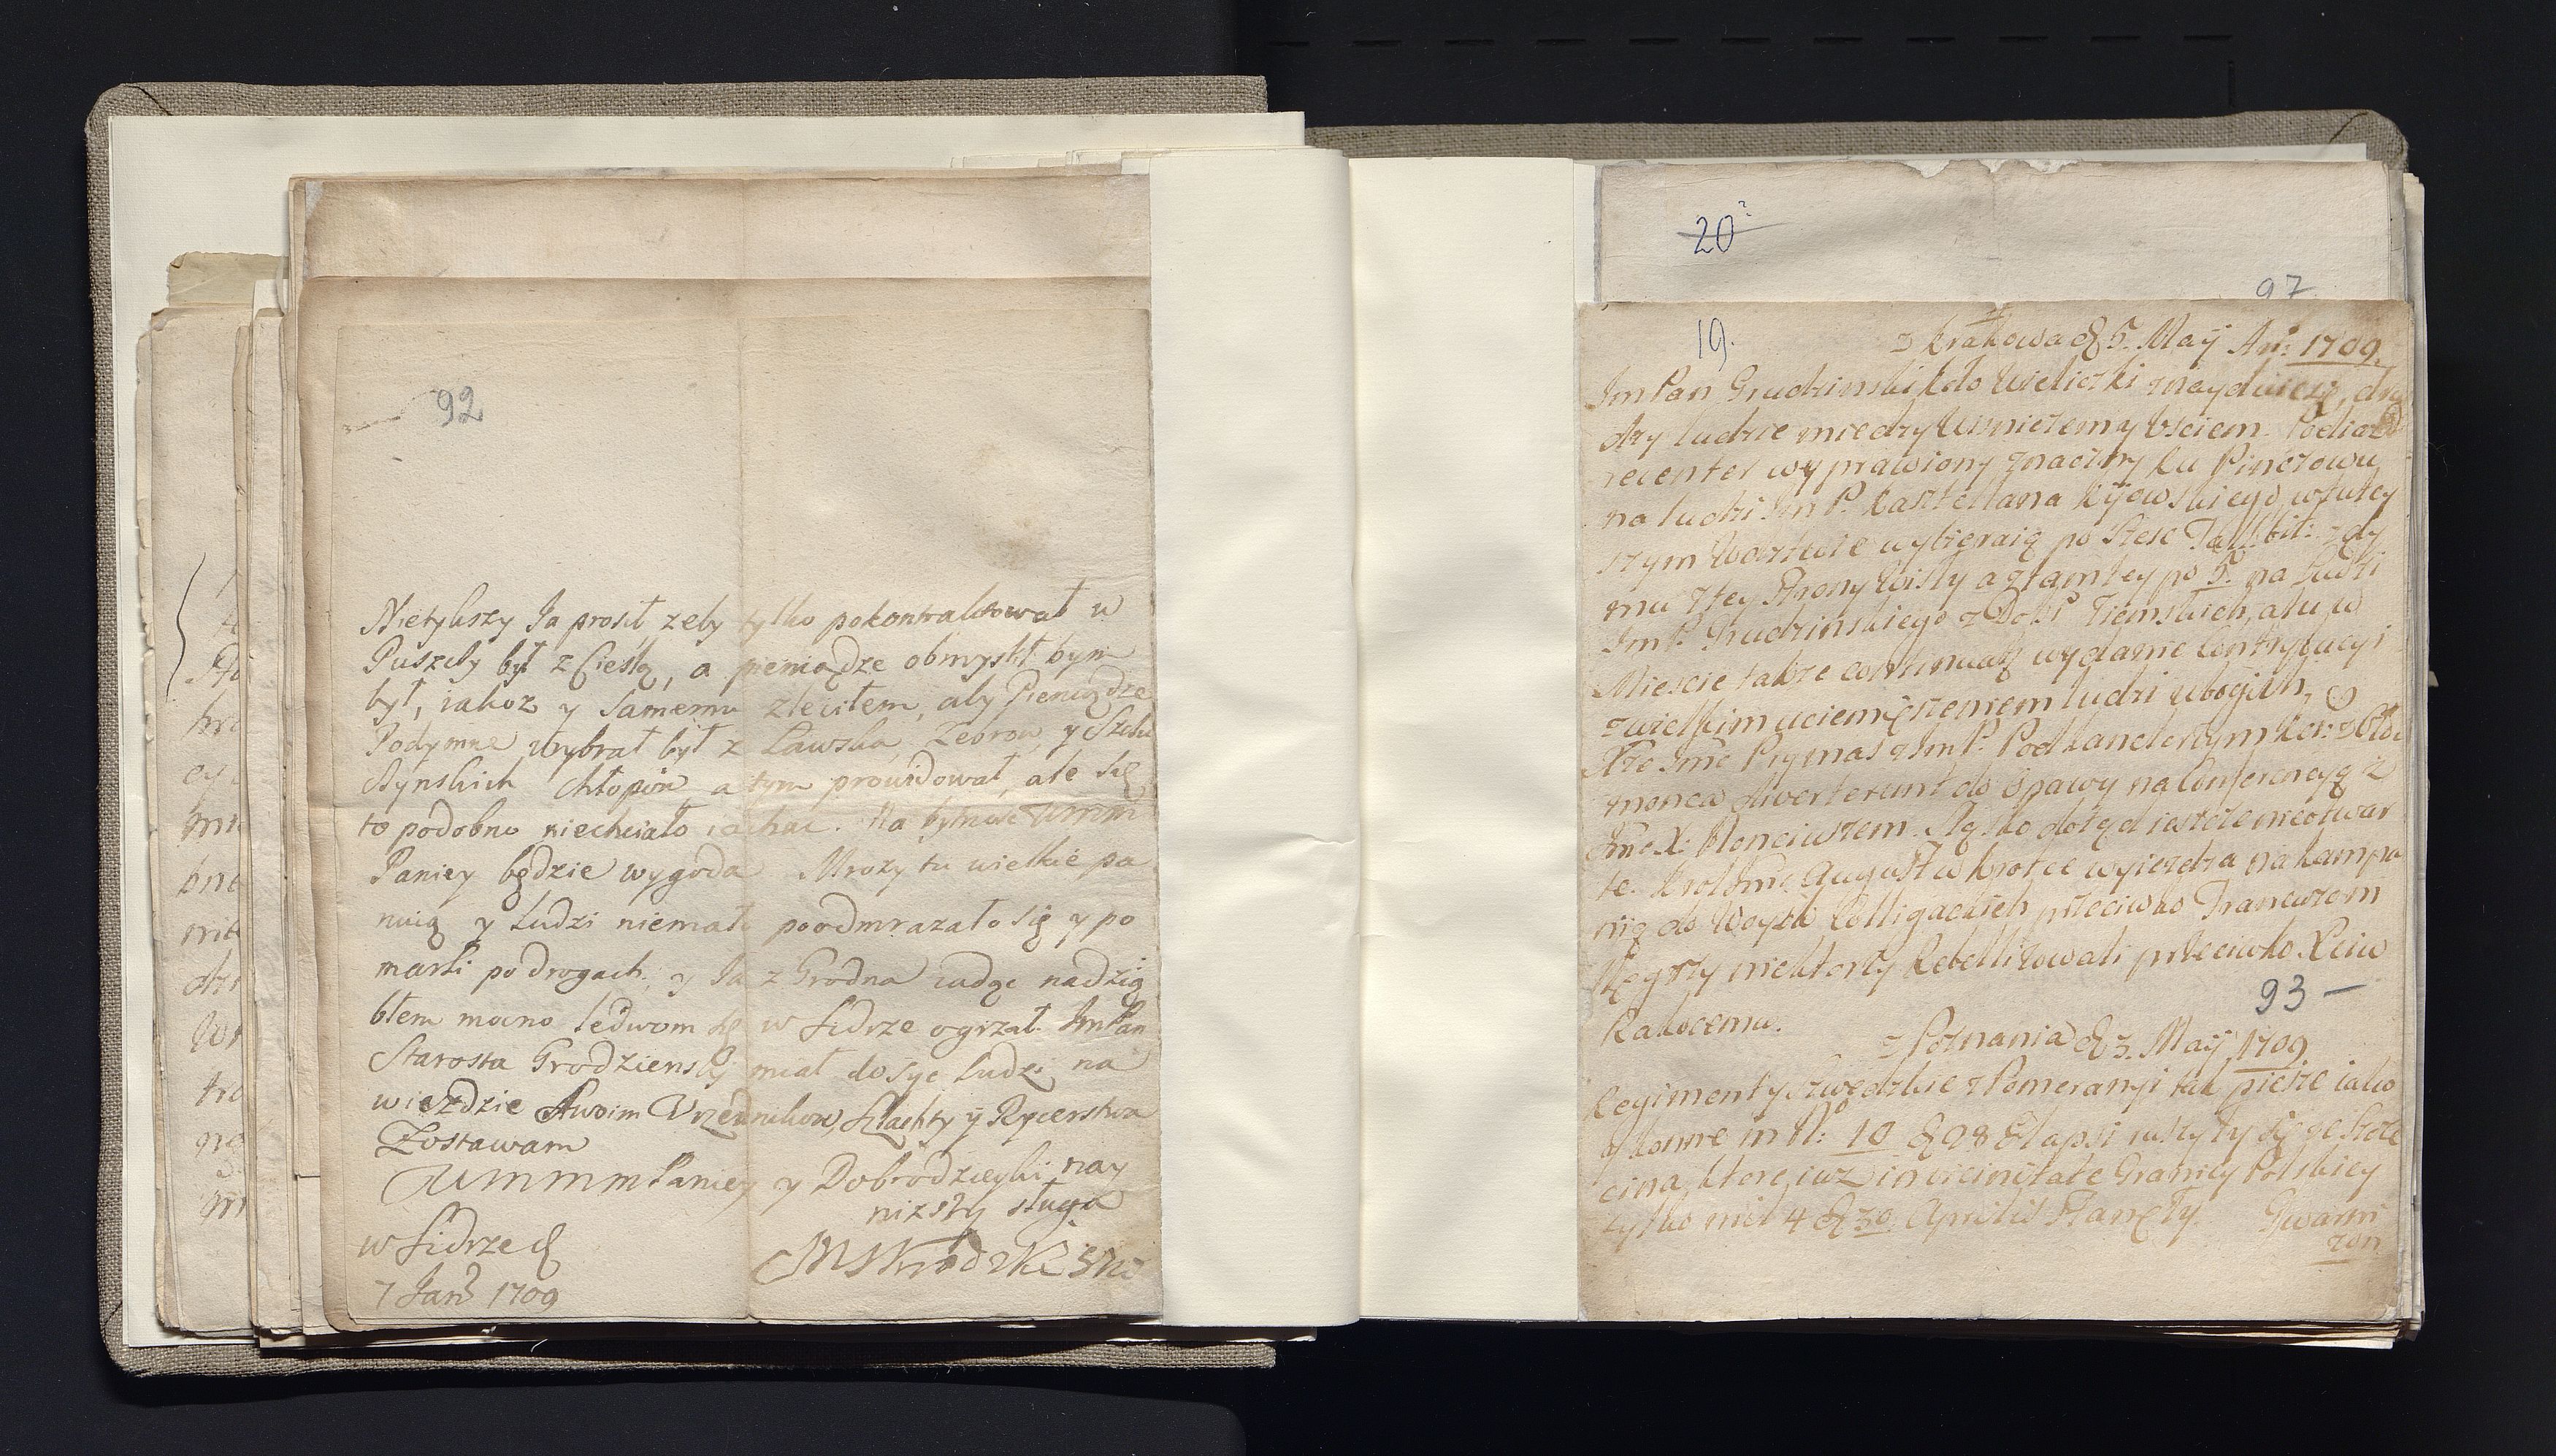 92
Nietylkszy Ja prosił zeby tylko pokontraktował w
Puszczy był z Cieslą, a pieniądze obmyslił bym
był, iakoz y Samemu zleciłem, aby Pieniądze
Podymne wybrał był z Ławska, Zebrow, y
Chłopow a tym prowidował, ale się
to podobno niechciało iachac. Na bytnosc Wmm
Paniey będzie wygoda Mrozy tu wielkie pa
nuią y Ludzi niemało poodmrazało się y po
marli po drogach, y Ja z Grodna iadąc nadzią
błem mocno ledwom się w Sidrze ogrzał. ImPan
Starosta Grodzienski miał dosyc Ludzi na
wiezdzie Swoim Vrzednikow, Szlachty y Rycerstwa
Zostawam
WmmmPaniey y Dobrodzieyki nay
nizszy sługa
w Sidrze d
7 Jan 1709
20?
97
19.
z Krakowa d 5. Maÿ An: 1709.
ImPan Grudzinski koło Wieliczki znayduiesię,
ludzie miedzy Wisniczem y Vsciem. Podiazd
recenter wyprawiony znaczny ku Pinczowu
na ludzi Im P. Kasztellana Kijowskiego, w tutey
szym Wodztwie wybieraią po szesc Tall. bit: z dy
mu z tey strony Wisły a z tamtey po 5. na ludzi
Im P. Grudzinskiego z Dobr Ziemskich, a tu w
Miescie takze continuatę wydanie Contrybucyi
z wielkim uciemięzeniem ludzi ubogich,
Xże Jmć Prymas z Im P. Podkanclerzym Kor: z
monca diverterunt do Opawy na Conferencyą z
Jmć X. Nonciuszem. Sląsko dotąd ieszcze nieotwar
te. Krol Jmć August w krotce wyiezdza na kampa
nią do Woysk Colligackich przeciwko Francuzom
Węgrzy niektorzy Rebellizowali przeciwko Xciu
Rakocemu.
93 —
z Poznania d 3. Maÿ 1709
Regimenty Szwedzkie z Pomeranyi tak piesze iako
y konne in N: 10 d 28 Elapsi ruszyły się ze Szcze
cina, ktore iuz in vicinitate Granicy Polskiey
tylko mil 4 d 30. Aprilis stanęły. Gwarni
zon